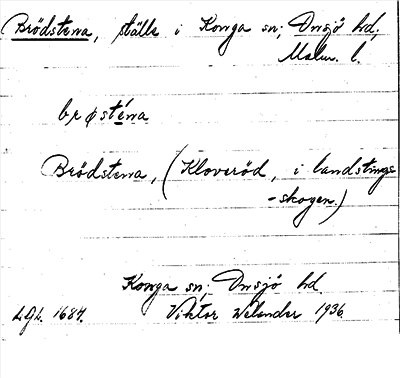 Brödstena, ställe i Konga sn; Onsjö hd,
Malm. l.
brøsténa
Brödstena, (Kloveröd, i landstings-
-skogen.)
Konga sn; Onsjö hd.
LGL. 1684. Viktor Welander 1936